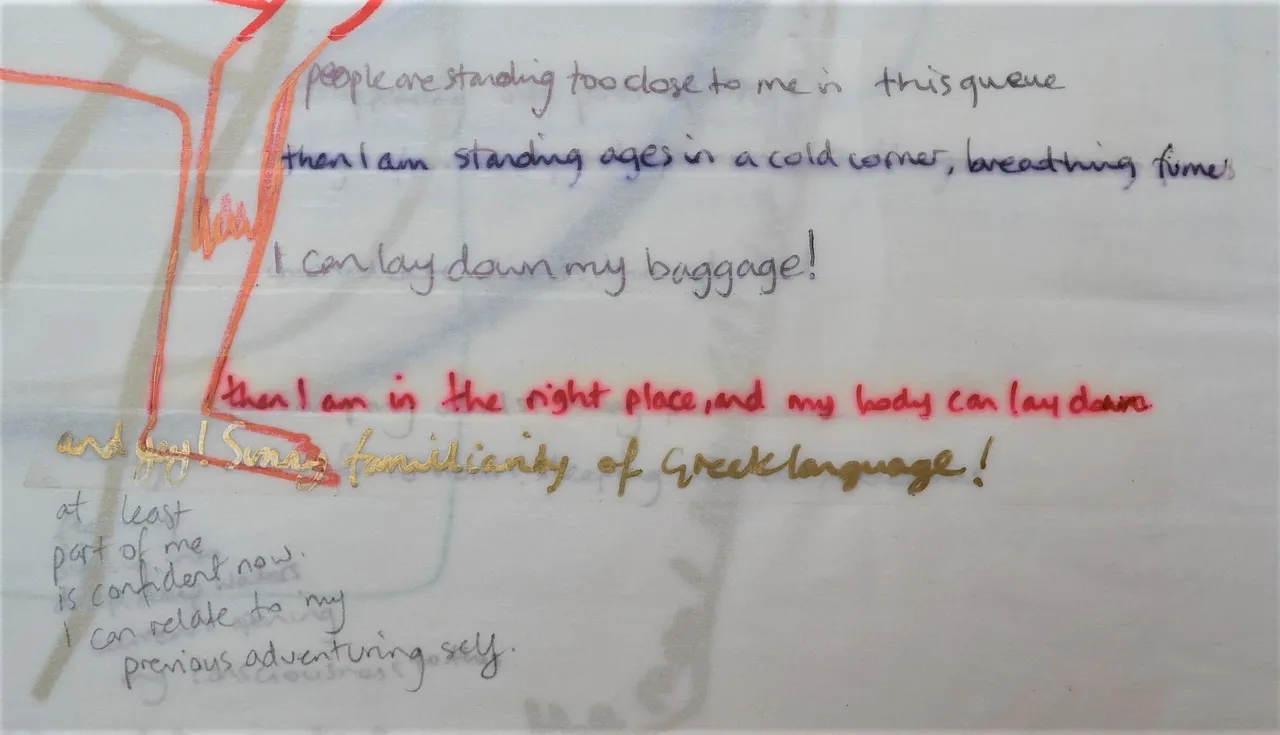 people are standing too close to me in this queue
then I am standing ages in a cold corner, breathing fumes
I can lay down my baggage!
then I am in the right place, and my body can lay down
and joy! Sunny familiarity of Greek language!
at least
part of me
is confident now.
I can relate to my
previous adventuring self.